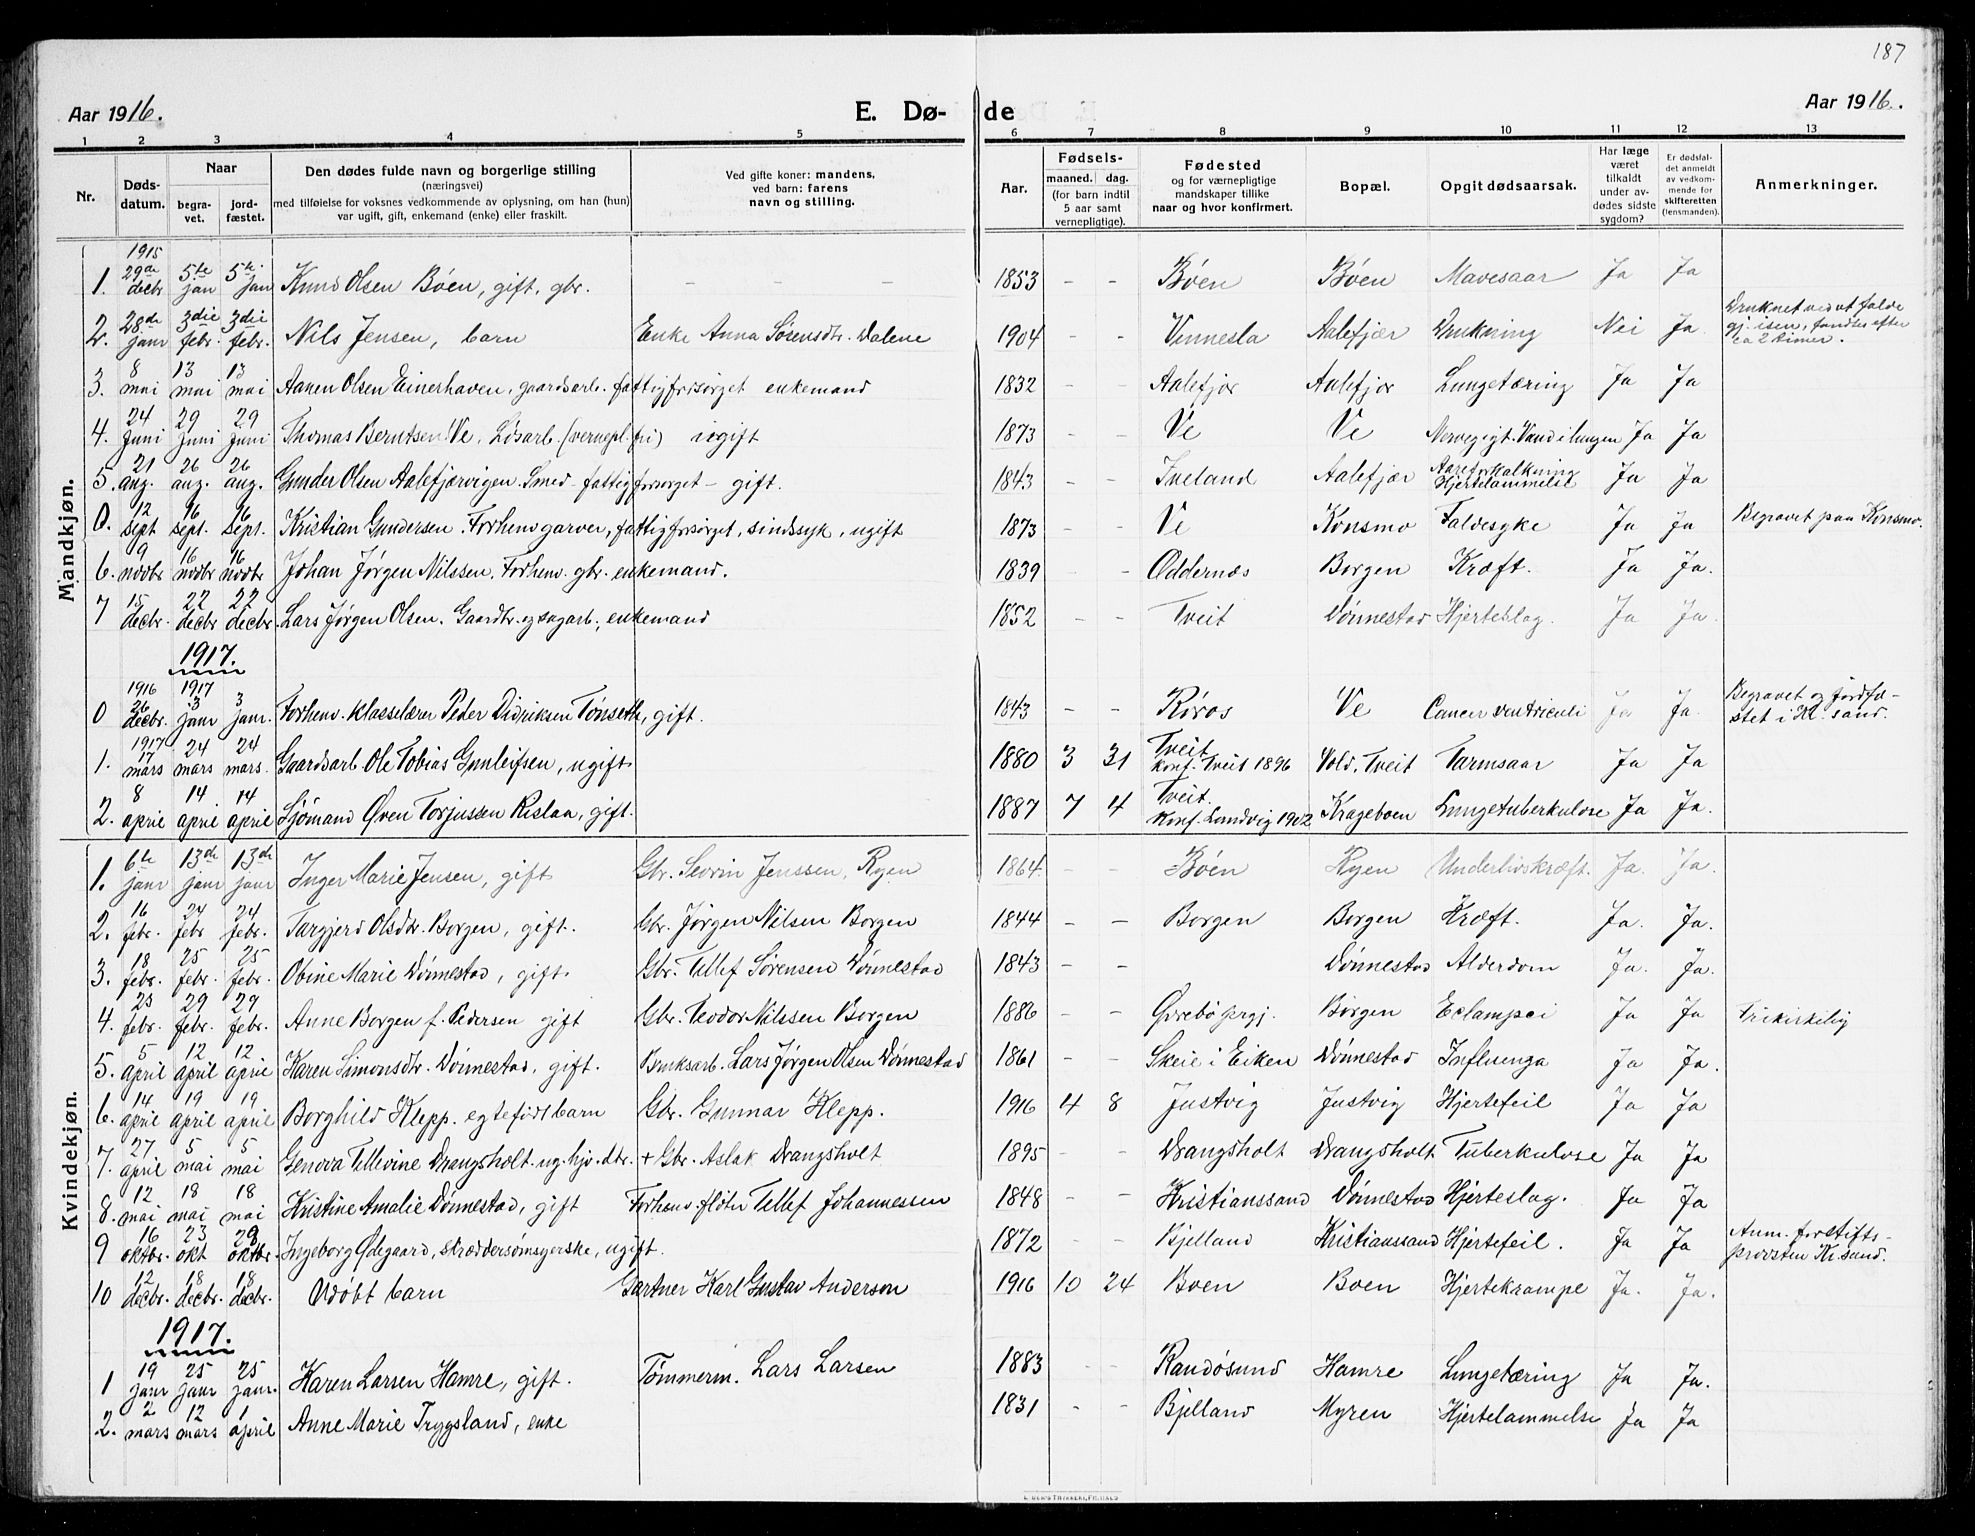 187
Aar 1916. E. Dø- de Aar 1916.
1 2 3 4 5 6 7 8 9 10 11 12 13
Nr. Døds-datum. Naar begra-vet. jord-fæstet. Den dødes fulde navn og borgerlige stilling (næringsvei) med tilføielse for voksnes vedkommende av oplysning, om han (hun) var ugift, gift, enkemand (enke) eller fraskilt. Ved gifte koner: mandens, ved barn: farens navn og stilling. Aar. Fødsels- maaned. dag. (for barn indtil 5 aar samt vernepligtige). Fødested og for værnepligtige mandskaper tillike naar og hvor konfirmert. Bopæl. Opgit dødsaarsak. Har læge været tilkaldt under av-dødes sidste sygdom? Er dødsfal-det anmeldt av vedkom-mende for skifteretten (lensmanden). Anmerkninger.
Mandkjøn.
1. 1915 29de decbr 5te jan 5te jan Knud Olsen Bóen, gift, gbr. - - - 1853 - - Bóen Bóen Mavesaar Ja Ja
2. 28de janr 3die febr. 3die febr. Nils Jensen, barn Enke Anna Sørensdtr. Dalene 1904 - - Vennesla Aalefjær Drukning Nei Ja Druknet ved at falde gj. isen, fandtes efter ca 2 timer.
3. 8 mai 13 mai 13 mai Aanen Olsen Einerhaven, gaardsarb. fattigforsørget enkemand 1832 - - Aalefjær Aalefjær Lungetæring Ja Ja
4. 24 Juni 29 Juni 29 Juni Thomas Berntsen Ve, Løsarb. (vernepl. fri) ugift 1873 - - Ve Ve Nervegigt. Vand i lungen Ja Ja
5. 21 aug. 26 aug. 26 aug. Gunder Olsen Aalefjærvigen. Smed - fattigforsørget - gift. 1843 - - Iveland Aalefjær Aareforkalkning Hjertelammelse Ja Ja
0. 12 sept 16 sept. 16 sept. Kristian Gundersen. Forhenv garver, fattigforsørget, sindssyk, ugift 1873 - - Ve Konsmo Faldesyke Ja Ja Begravet paa Konsmo.
6. 9 novbr 16 novbr 16 novbr Johan Jørgen Nilssen. Forhenv. gbr. enkemand. 1839 - - Oddernæs Borgen Kræft. Ja Ja.
7 15 decbr. 22 decbr 22 decbr. Lars Jørgen Olsen. Gaardbr. og sagarb., enkemand 1852 - - Tveit Dónnestad Hjerteslag. Ja Ja.
1917.
0 1916 26 decbr. 1917 3 janr 3 janr. Forhenv. klasselærer Peder Didriksen Tønseth, gift. 1843 - - Røros Ve Cancer ventriculi Ja Ja. Begravet og jordfæ-stet i Kr. sand.
1. 1917 17 mars 24 mars 24 mars. Gaardsarb. Ole Tobias Gunleifsen, ugift 1880 3 31 Tveit konf. Tveit 1896 Vold, Tveit Tarmsaar Ja Ja
2. 8 april 14 april 14 april Sjømand Øven Torjussen Rislaa, gift. 1887 7 4 Tveit. Konf. Landvig 1902 Krageboen Lungetuberkulose Ja Ja.
Kvindekjøn.
1. 6te janr 13de janr 13de janr Inger Marie Jensen, gift Gbr. Severin Jenssen, Ryen 1864 - - Bóen Ryen Underlivskræft. Ja. Ja.
2. 16 febr. 24 febr 24 febr. Targjerd Olsdtr. Borgen, gift. Gbr. Jørgen Nilsen Borgen 1844 - - Borgen Borgen Kræft. Ja. Ja.
3. 18 febr. 25 febr. 25 febr. Obine Marie Dónnestad, gift. Gbr. Tellef Sørensen Dónnestad 1843 - - Dónnestad Alderdom Ja. Ja.
4. 23 febr. 29 febr. 29 febr. Anne Borgen f. Pedersen gift Gbr. Teodor Nilssen Borgen 1886 - - Øvrebø prgj. Borgen Eclampsi Ja Ja Frikirkelig
5. 5 april 12 april 12 april Karen Simonsdtr. Dónnestad, gift. Bruksarb. Lars Jørgen Olsen Dónnestad 1861 - - Skeie i Eiken Dónnestad Influenza Ja Ja.
6. 14 april 19 april 19 april Borghild Klepp, egtefødt barn Gbr. Gunnar Klepp. 1916 4 8 Justvig Justvig Hjertefeil Ja Ja
7. 27 april 5 mai 5 mai Genova Tellevine Drangsholt. ug. hjv. dtr. + Gbr. Aslak Drangsholt 1895 - - Drangsholt Drangsholt Tuberkulose Ja Ja
8. 12 mai 18 mai 18 mai Kristine Amalie Dónnestad, gift Forhenv. fløter Tellef Johannessen 1848 - - Kristianssand Dónnestad Hjerteslag. Ja Ja
9 16 oktbr. 23 okt 23 oktbr. Ingeborg Ødegaard, skræddersømsyerske, ugift. 1872 - - Bjelland Kristianssand Hjertefeil. Ja Ja Anm. for stifts-provsten Kr. sand.
10 12 decbr. 18 decbr. 18 decbr. Udøbt barn Gartner Karl Gustav Anderson 1916 10 24 Boen Boen Hjertekrampe Ja. Ja.
1917.
1 19 janr 25 janr 25 janr. Karen Larsen Hamre, gift. Tømmerm. Lars Larsen 1883 - - Randøsund Hamre Lungetæring Ja Ja.
2. 2 mars 12 mars 1 april Anne Marie Trygsland, enke 1831 - - Bjelland Myren Hjertelammelse Ja Ja